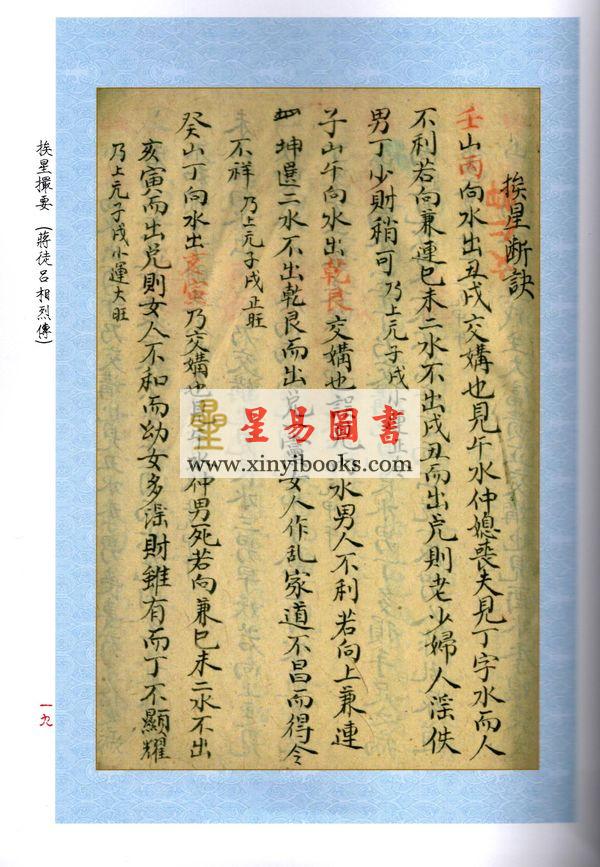 挨星断訣
壬山丙向水出丑戌交媾也見午水仲媳喪夫見丁字水而人
不利若向兼連巳未二水不出戌丑而出兑則老少婦人淫佚
男丁少財稍可乃上元子戌小運
子山午向水出乾艮交媾也水男人不利若向上兼連
坤選二水不出乾艮而出女人作乱家道不昌而得令
不祥乃上元子戌正旺
癸山丁向水出亥寅乃交媾也水仲男死若向兼巳未二水不出
亥寅而出兑則女人不和而幼女多淫財雖有而丁不顯耀
乃上元子戌小運大旺
挨星撮要（蔣徒呂相烈傳）
一九
星易圖書
www.xinyibooks.com